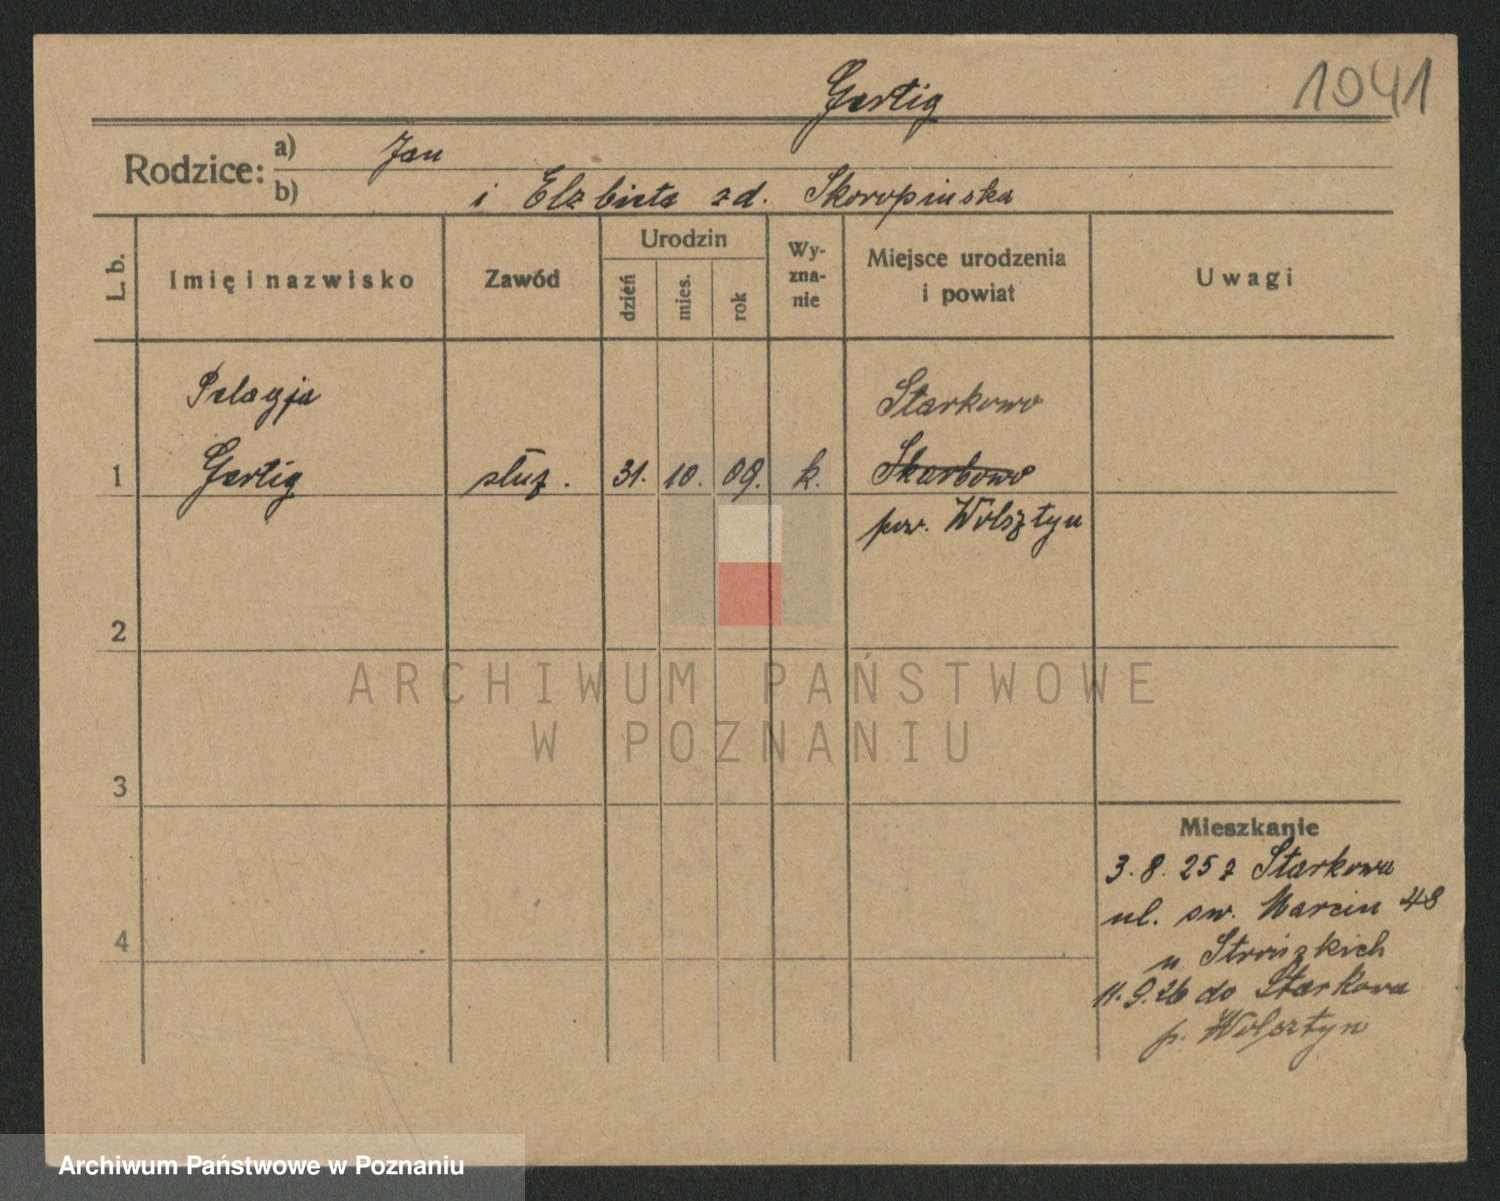 Gertig
1041
Rodzice: a) Jan
b) i Elzbieta zd. Skoropinska
L. b.
Imię i nazwisko
Zawód
Urodzin
dzień
mies.
rok
Wy-
zna-
nie
Miejsce urodzenia
i powiat
Uwagi
Pelagja
Starkowo
1 Gertig służ. 31. 10. 09. k. Skarbowo
pow. Wolsztyn
2
3
4
Mieszkanie
3. 8. 25 z Starkowa
ul. sw. Marcin 48
u
11. 9. 26 do Starkowa
p. Wolsztyn
ARCHIWUM PAŃSTWOWE
W POZNANIU
Archiwum Państwowe w Poznaniu